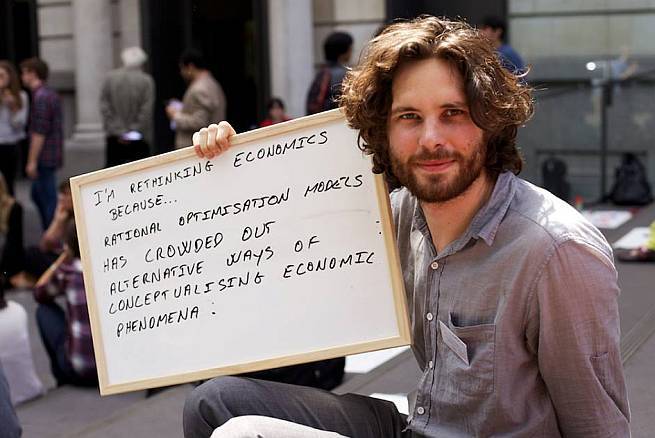 I'M RETHINKING ECONOMICS
BECAUSE...
RATIONAL OPTIMISATION MODELS
HAS CROWDED OUT
ALTERNATIVE WAYS OF
CONCEPTUALISING ECONOMIC
PHENOMENA.